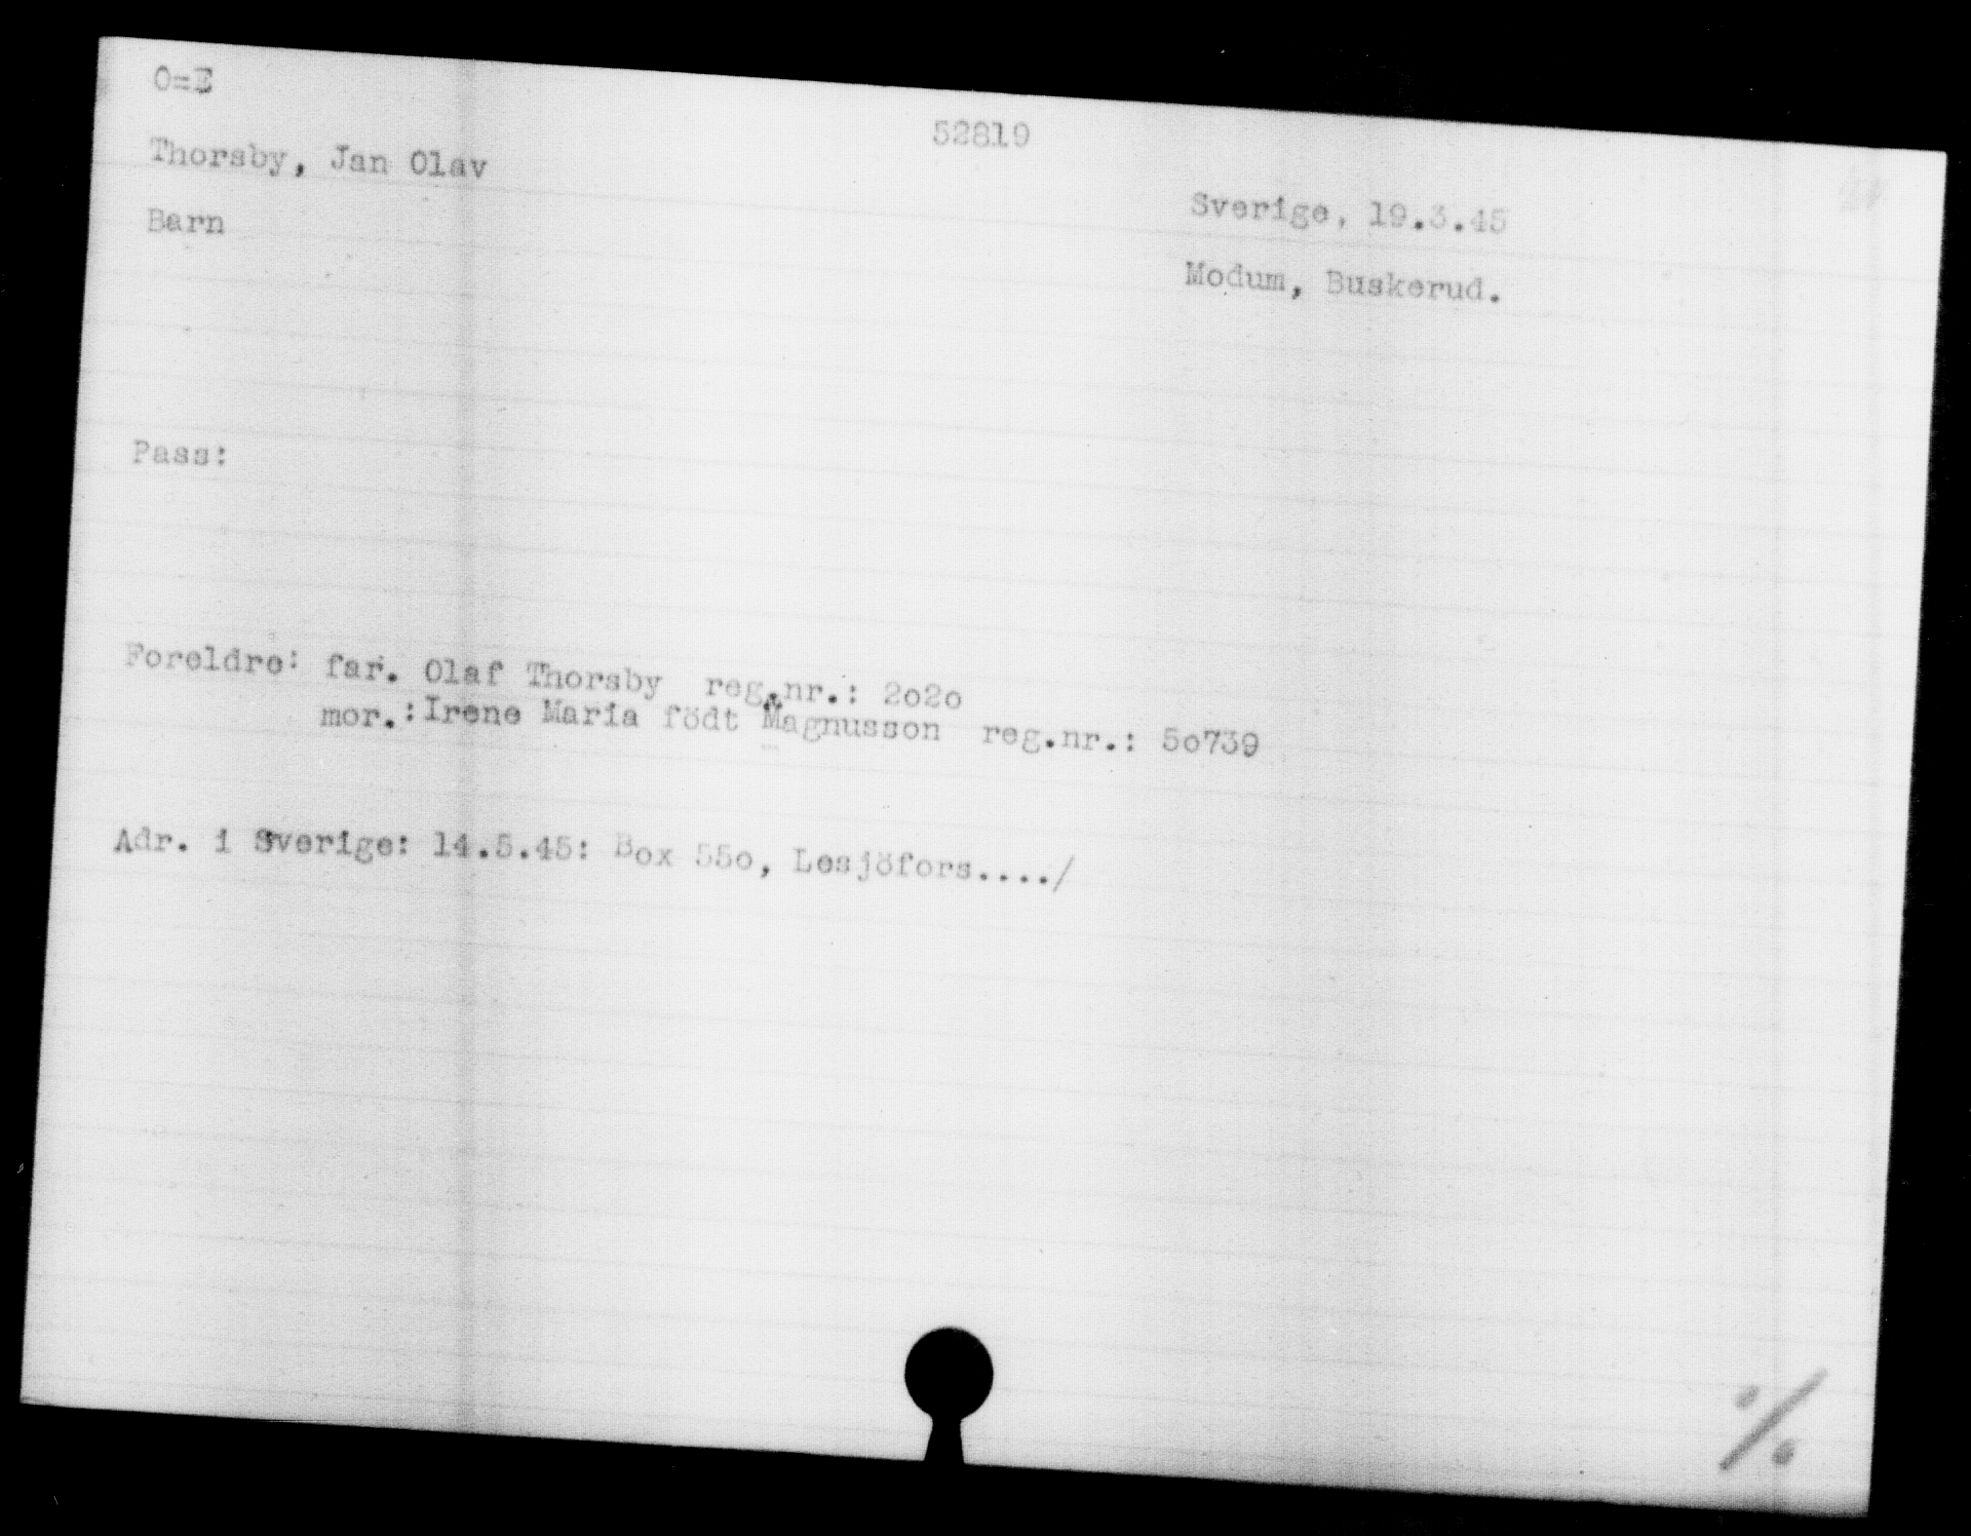 O=E
52819
Thorsby, Jan Olav
Sverige, 19.3.45
Barn
Modum, Buskerud.
Pass:
Foreldre: far. Olaf Thorsby reg.nr.: 2o2o
mor.: Irene Maria födt Magnusson reg.nr.: 5o739
Adr. i Sverige: 14.5.45: Box 55o, Lesjöfors..../